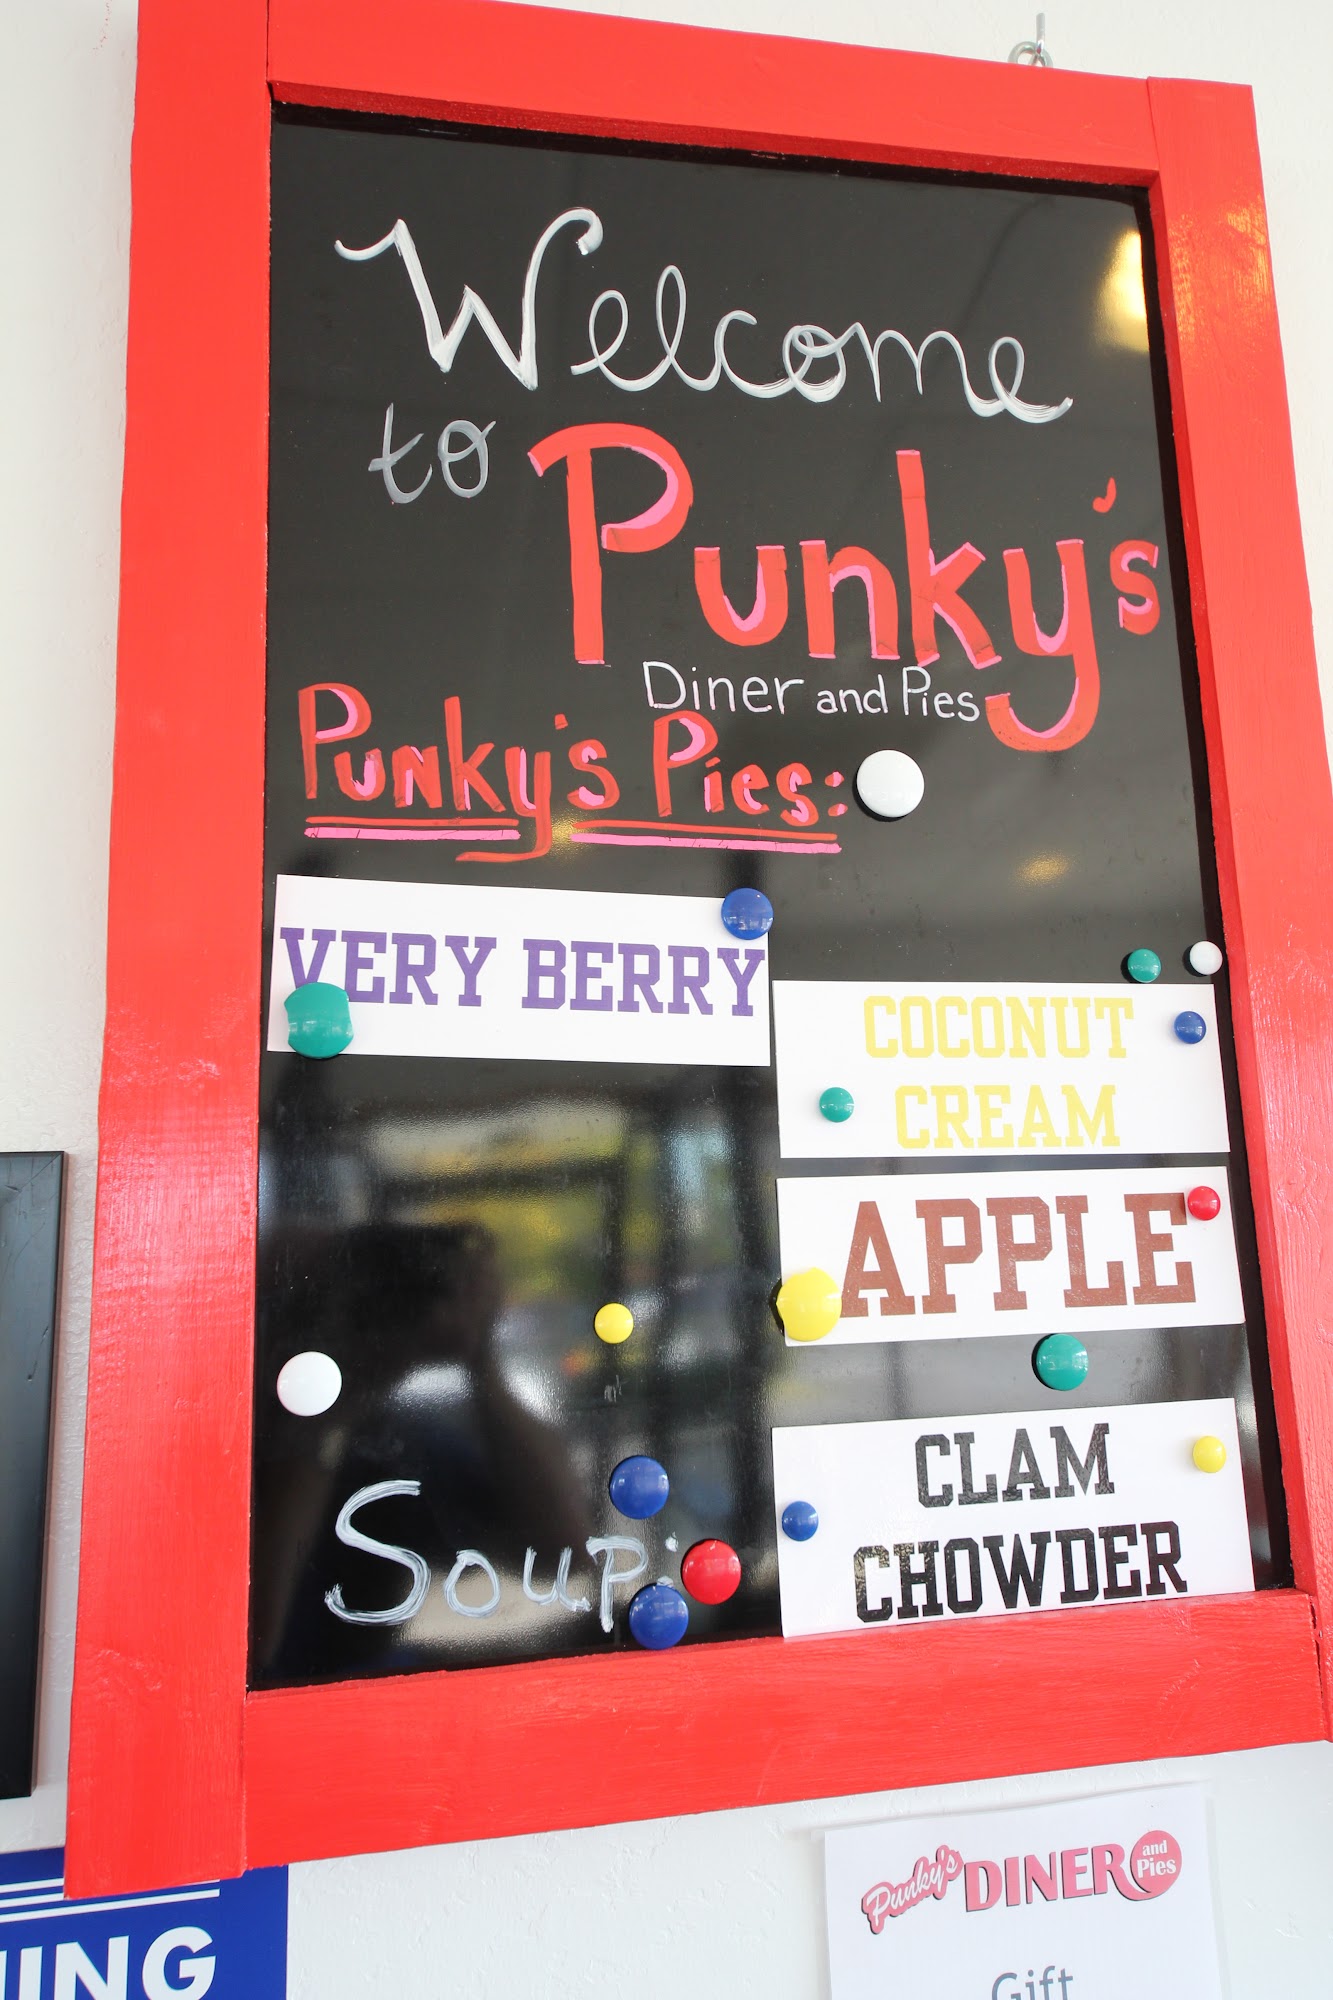 Welcome
to Punky's
Diner and Pies
Punky's Pies:
VERY BERRY
COCONUT
CREAM
APPLE
Soup:
CLAM
CHOWDER
Punky's DINER and Pies
Gift